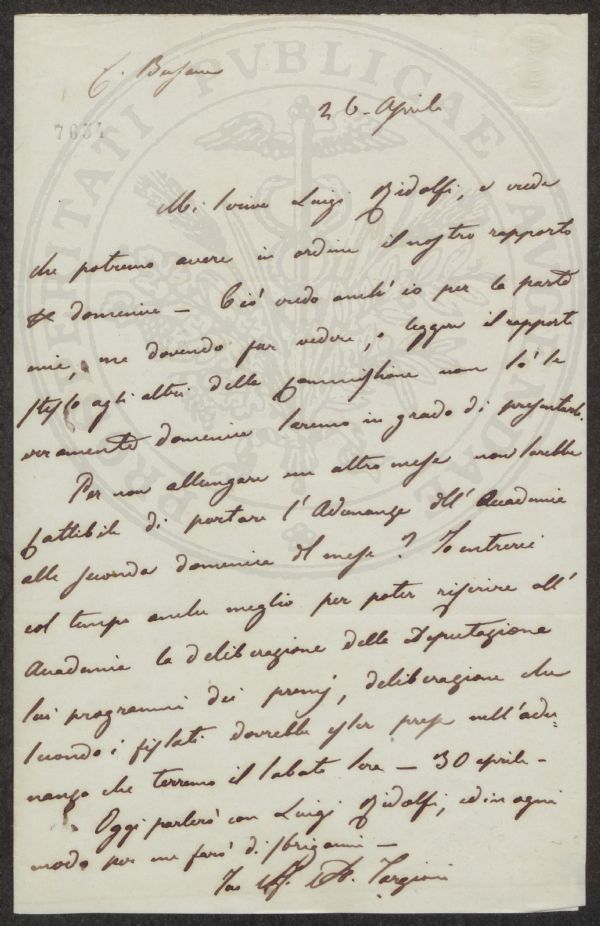 C. Busacca
26. Aprile
7634
Mi scrive Luigi Ridolfi, e crede
che potremo avere in ordine il nostro rapporto
domenica — Ciò credo anch' io per la parte
mia, ma dovendo far vedere, e leggere il rapporto
stesso agli altri della Commissione non so' se
veramente domenica saremo in grado di presentarlo.
Per non allungare un altro mese non sarebbe
fattibile di portare l' Adunanza dell' Accademia
alla seconda domenica del mese? Io entrerei
col tempo anche meglio per poter riferire all'
Accademia la deliberazione della Deputazione
sui programmi dei premj, deliberazione che
secondo i fissati dovrebbe esser presa nell' adu-
nanza che terremo il sabato sera — 30 aprile —
Oggi parlerò con Luigi Ridolfi, ed in ogni
modo per me farò di sbrigarmi —
Suo Aff. Ad. Targioni
PROSPERITATI PVBLICAE AVGENDAE